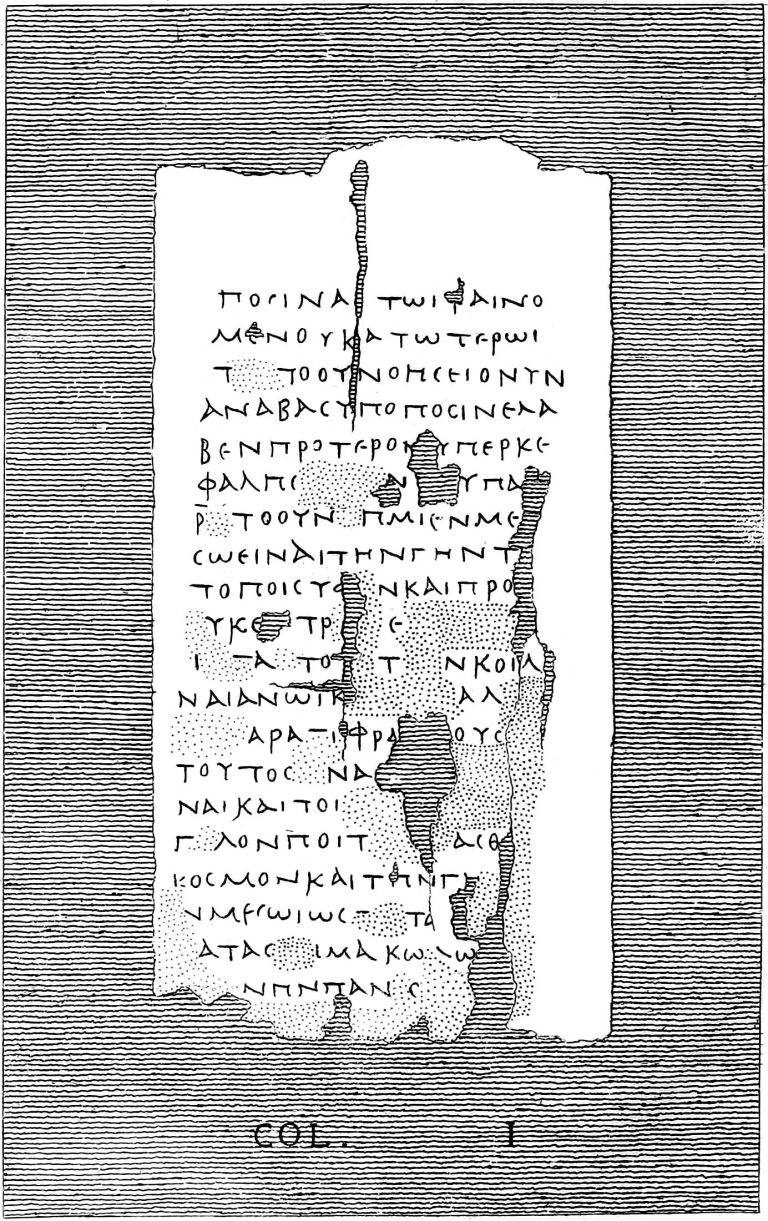 ΠΟΡΙΝΑ ΤΩΙΦΑΙΝΟ
ΜΕΝΟΥΚΑΤΩΤΕΡΩΙ
Τ ΤΟΟΥΝΟΗΣΕΙΟΝΥΝ
ΑΝΑΒΑϹΥΠΟΠΟϹΙΝΕΛΑ
ΒΕΝΠΡΟΤΕΡΟΝΥΠΕΡΚΕ
ΦΑΛΗϹ ΑΝ ΥΠΑ
Ρ ΤΟΟΥΝ ΗΜΙΕΝΜΕ
ϹΩΕΙΝΑΙΤΗΝΓΗΝΤ
ΤΟΠΟΙϹΥΦ ΝΚΑΙΠΡΟ
ΥΚΕ ΤΡ Ε
Ι ΤΑ ΤΟ Τ ΝΚΟΙΛ
ΝΑΙΑΝΩΙΚ ΑΛ
ΑΡΑΤΙΦΡΑ ΟΥϹ
ΤΟΥΤΟϹ ΝΑ
ΝΑΙΚΑΙΤΟΙ
Γ ΛΟΝΠΟΙΤ ΑϹΘ
ΚΟϹΜΟΝΚΑΙΤΗΝΓΗ
ΝΜΕϹΩΙΩϹ ΤΑ
ΑΤΑϹ ΙΜΑΚΩ Ω
ΝΗΝΠΑΝ Ϲ
COL. I